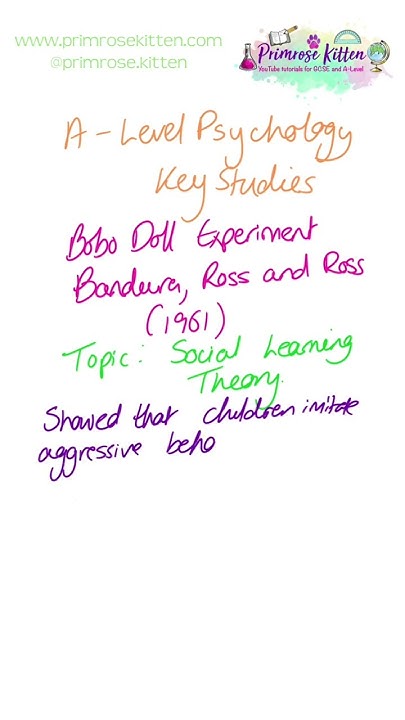 www.primrosekitten.com
@primrose.kitten
Primrose Kitten
YouTube tutorials for GCSE and A-Level
A - Level Psychology
Key Studies
Bobo Doll Experiment
Bandura, Ross and Ross
(1961)
Topic: Social Learning
Theory.
Showed that children imitate
aggressive beho